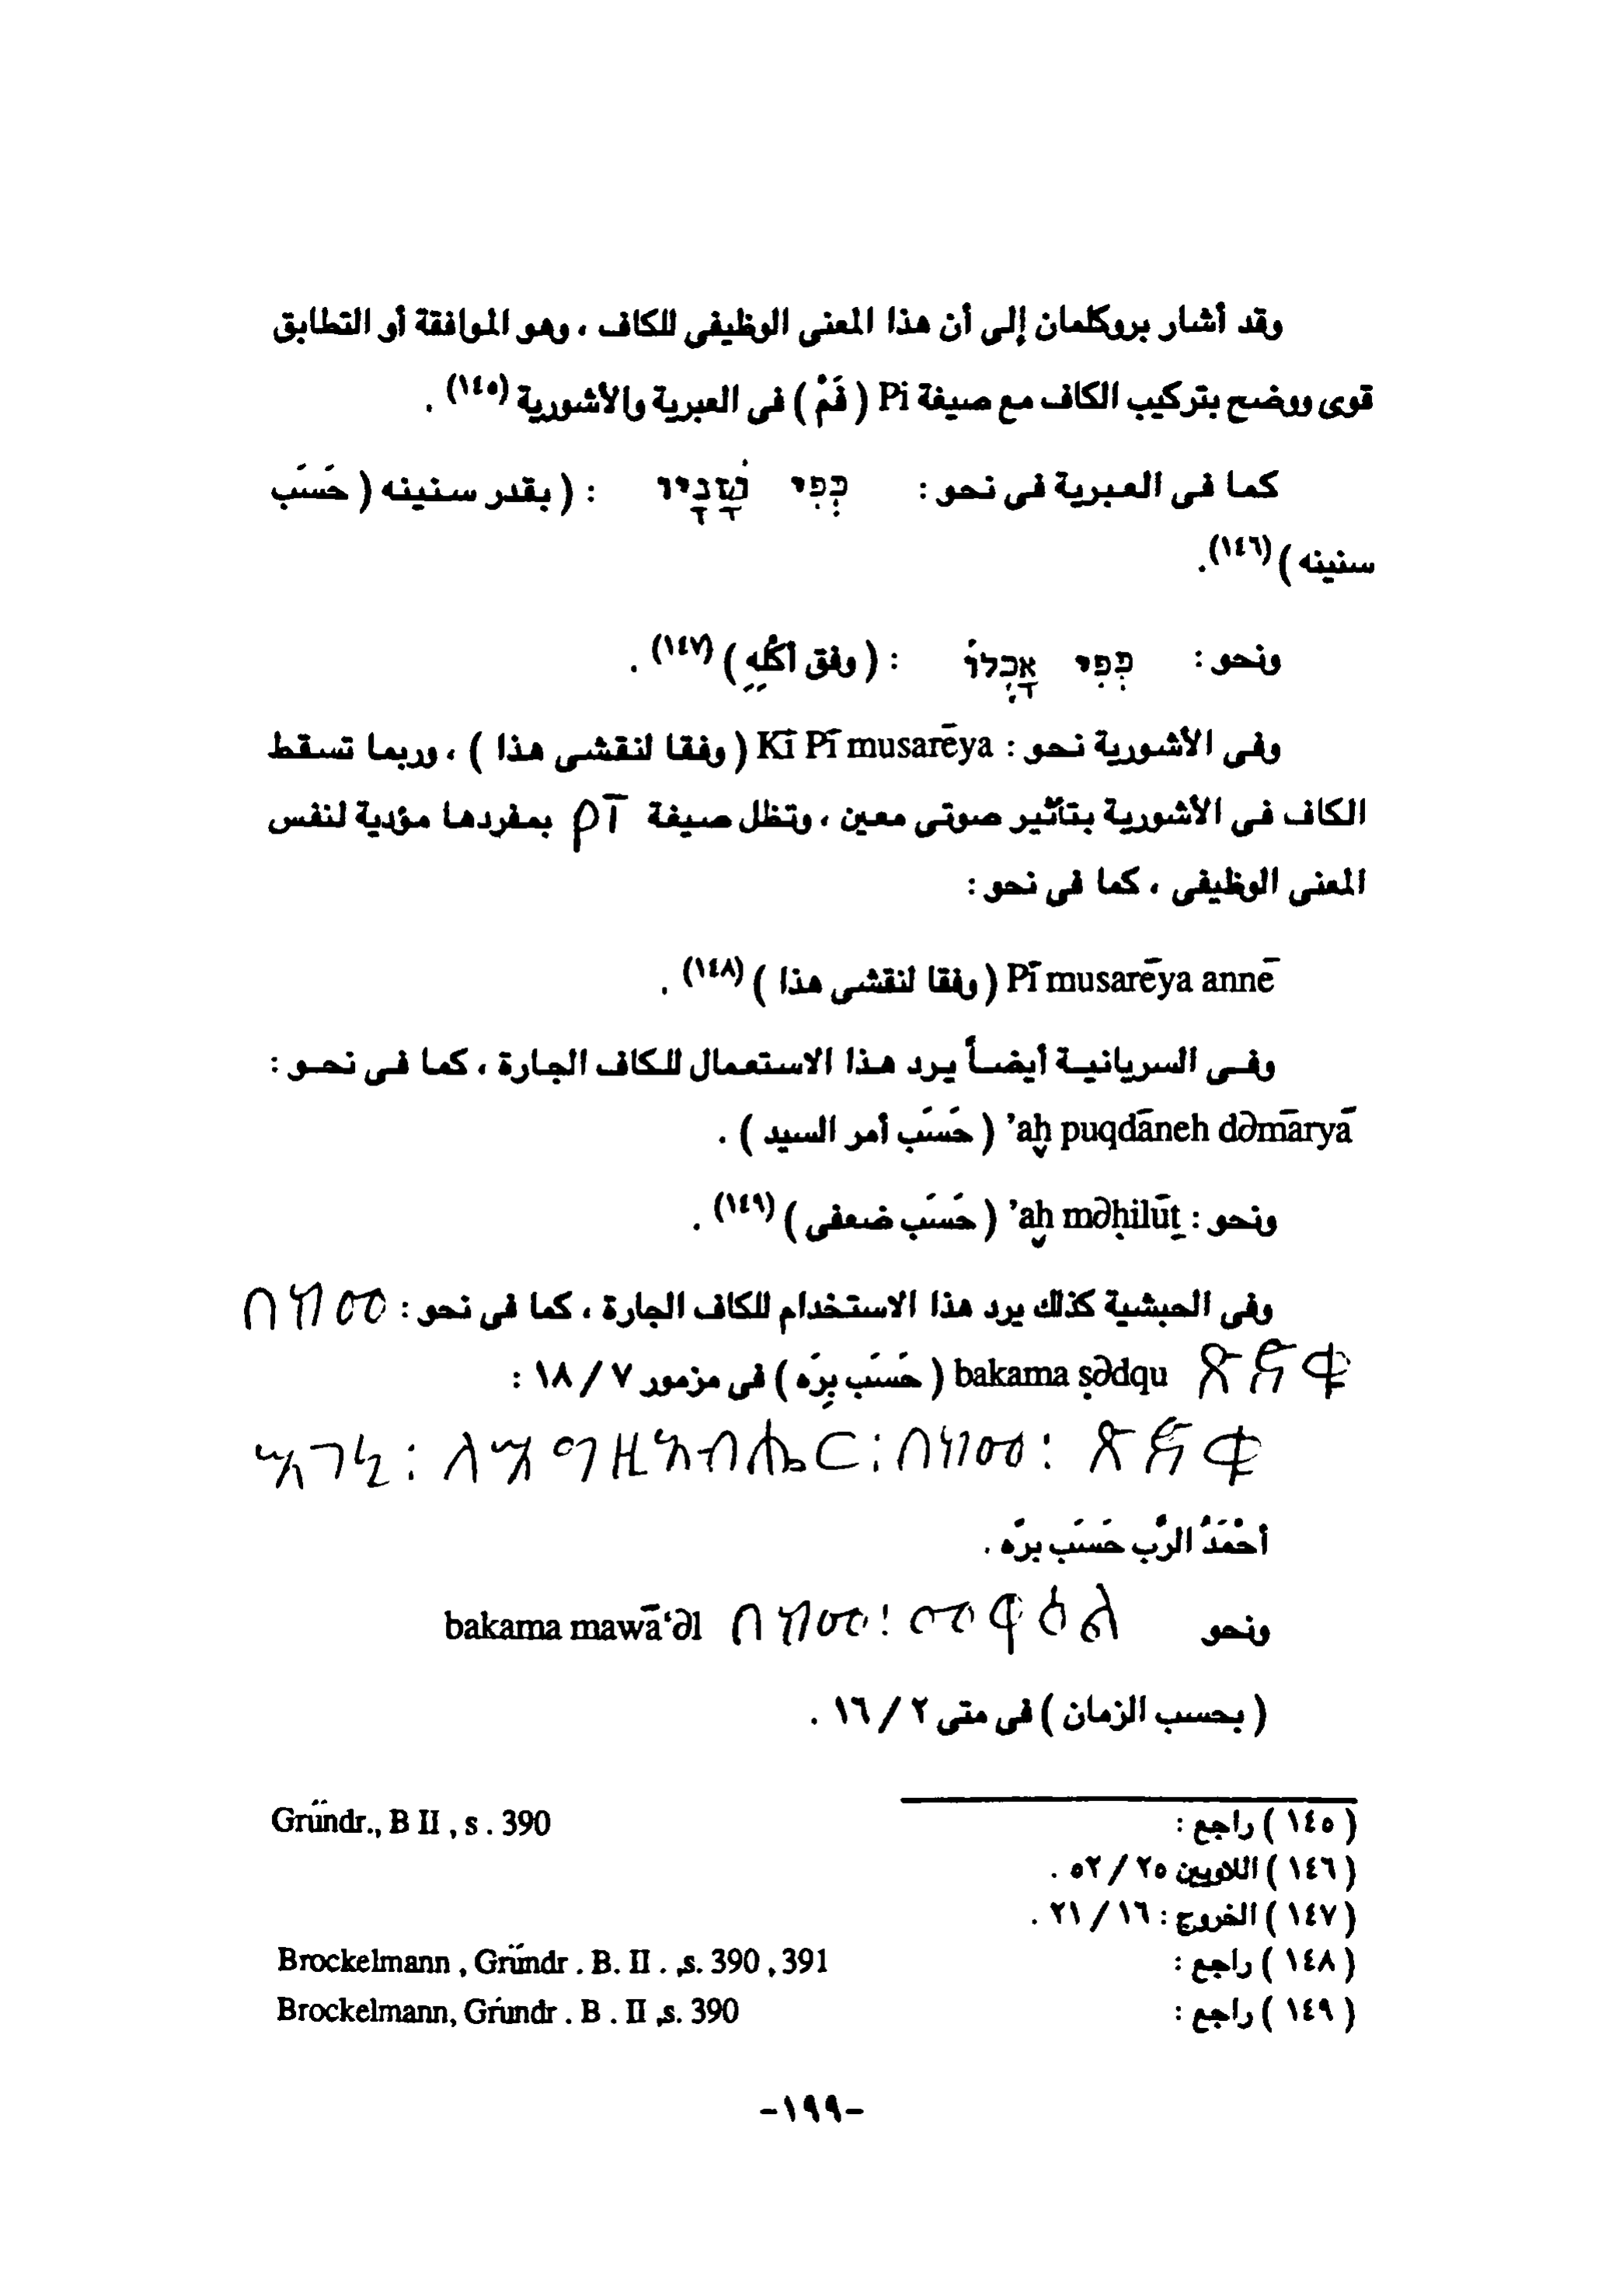 وقد أشار بروكلمان إلى أن هذا المعنى الوظيفى للكاف ، وهو الموافقة أو التطابق
قوى ووضح بتركيب الكاف مع صيغة Pi ( فَمْ ) فى العبرية والأشورية (١٤٥) .
كما فى العبرية فى نحو : כְּפִי שָׁנָיו : ( بقدر سنينه ( حَسَب
سنينه ) (١٤٦).
ونحو : כְּפִי אָכְלוֹ : ( وفق أكْلِهِ ) (١٤٧) .
وفى الأشورية نحو : Kī Pī musarēya ( وفقا لنقشى هذا ) ، وربما تسقط
الكاف فى الأشورية بتأثير صوتى معين ، وتظل صيغة pī بمفردها مؤدية لنفس
المعنى الوظيفى ، كما فى نحو :
Pī musarēya annē ( وفقا لنقشى هذا ) (١٤٨) .
وفى السريانية أيضاً يرد هذا الاستعمال للكاف الجارة ، كما فى نحو :
’aḫ puqdāneh dəmāryā ( حَسَب أمر السيد ) .
ونحو : ’aḫ məḥilūṯ ( حَسَب ضعفى ) (١٤٩) .
وفى الحبشية كذلك يرد هذا الاستخدام للكاف الجارة ، كما فى نحو : በከመ
ጽድቁ bakama ṣədqu ( حَسَب بِرَه ) فى مزمور ٧ / ١٨ :
በከመ : ጽድቁ
أحْمَدُ الرَّب حَسَب برَّه .
ونحو በከመ : መዋዕል bakama mawā‘əl
( بحسب الزمان ) فى متى ٢ / ١٦ .
( ١٤٥ ) راجع : Gründr., B II , s . 390
( ١٤٦ ) اللاويين ٢٥ / ٥٢ .
( ١٤٧ ) الخروج : ١٦ / ٢١ .
( ١٤٨ ) راجع : Brockelmann , Gründr . B. II . ,s. 390 , 391
( ١٤٩ ) راجع : Brockelmann, Gründr . B . II ,s. 390
-١٩٩-